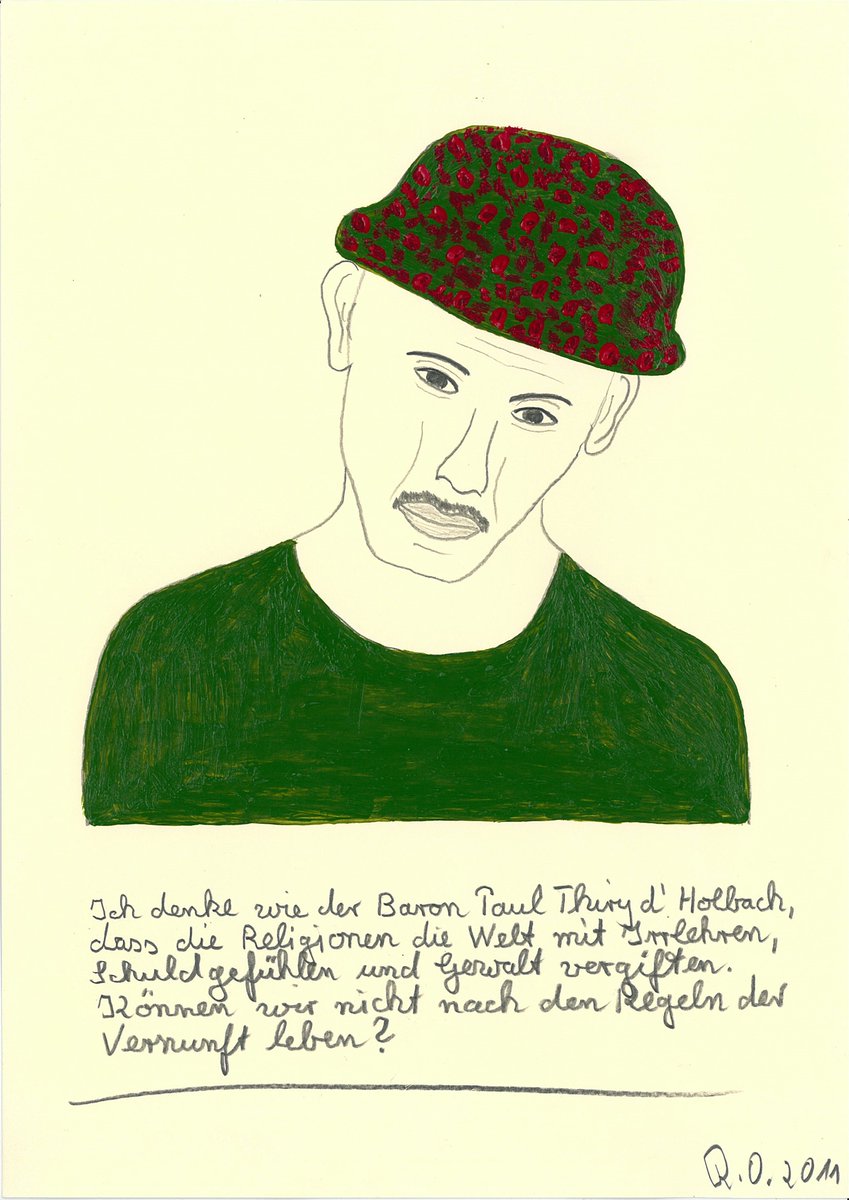 Ich denke wie der Baron Paul Thiry d' Holbach,
dass die Religionen die Welt mit Irrlehren,
Schuldgefühlen und Gewalt vergiften.
Können wir nicht nach den Regeln der
Vernunft leben?
R.O. 2011